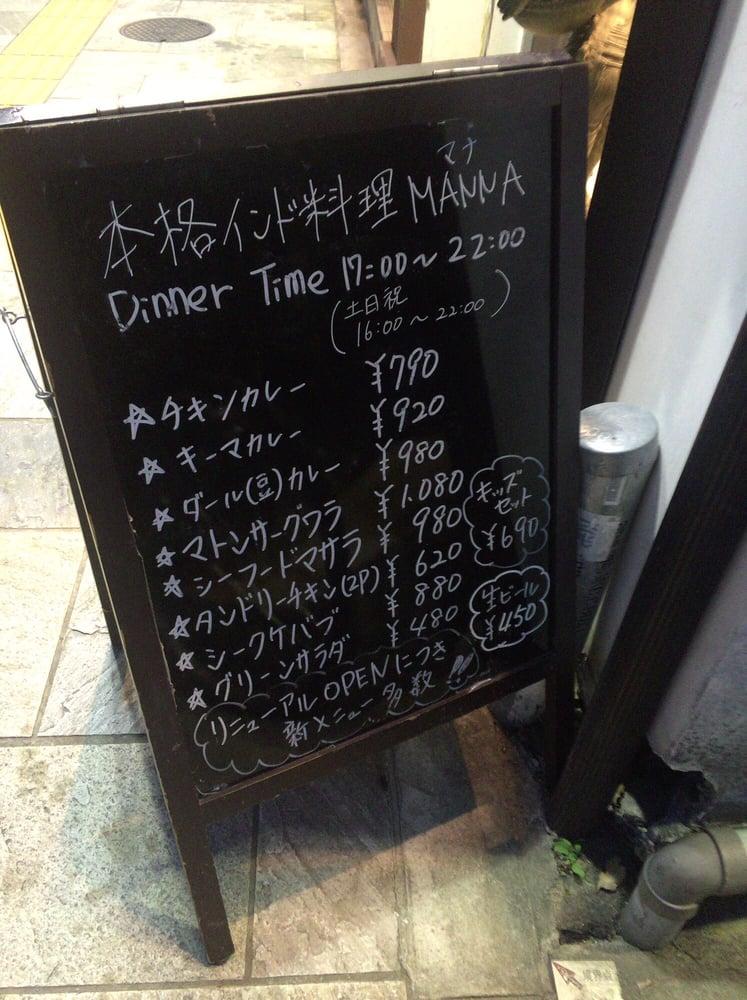 マナ
本格インド料理 MANNA
Dinner Time 17:00～22:00
(土日祝
16:00～22:00)
☆チキンカレー ¥790
☆キーマカレー ¥920
☆ダール(豆)カレー ¥980
☆マトンサーグワラ ¥1.080
☆シーフードマサラ ¥980
☆タンドリーチキン(2P) ¥620
☆シークケバブ ¥880
☆グリーンサラダ ¥480
キッズ
セット
¥690
生ビール
¥450
リニューアルOPENにつき
新メニュー多数!!